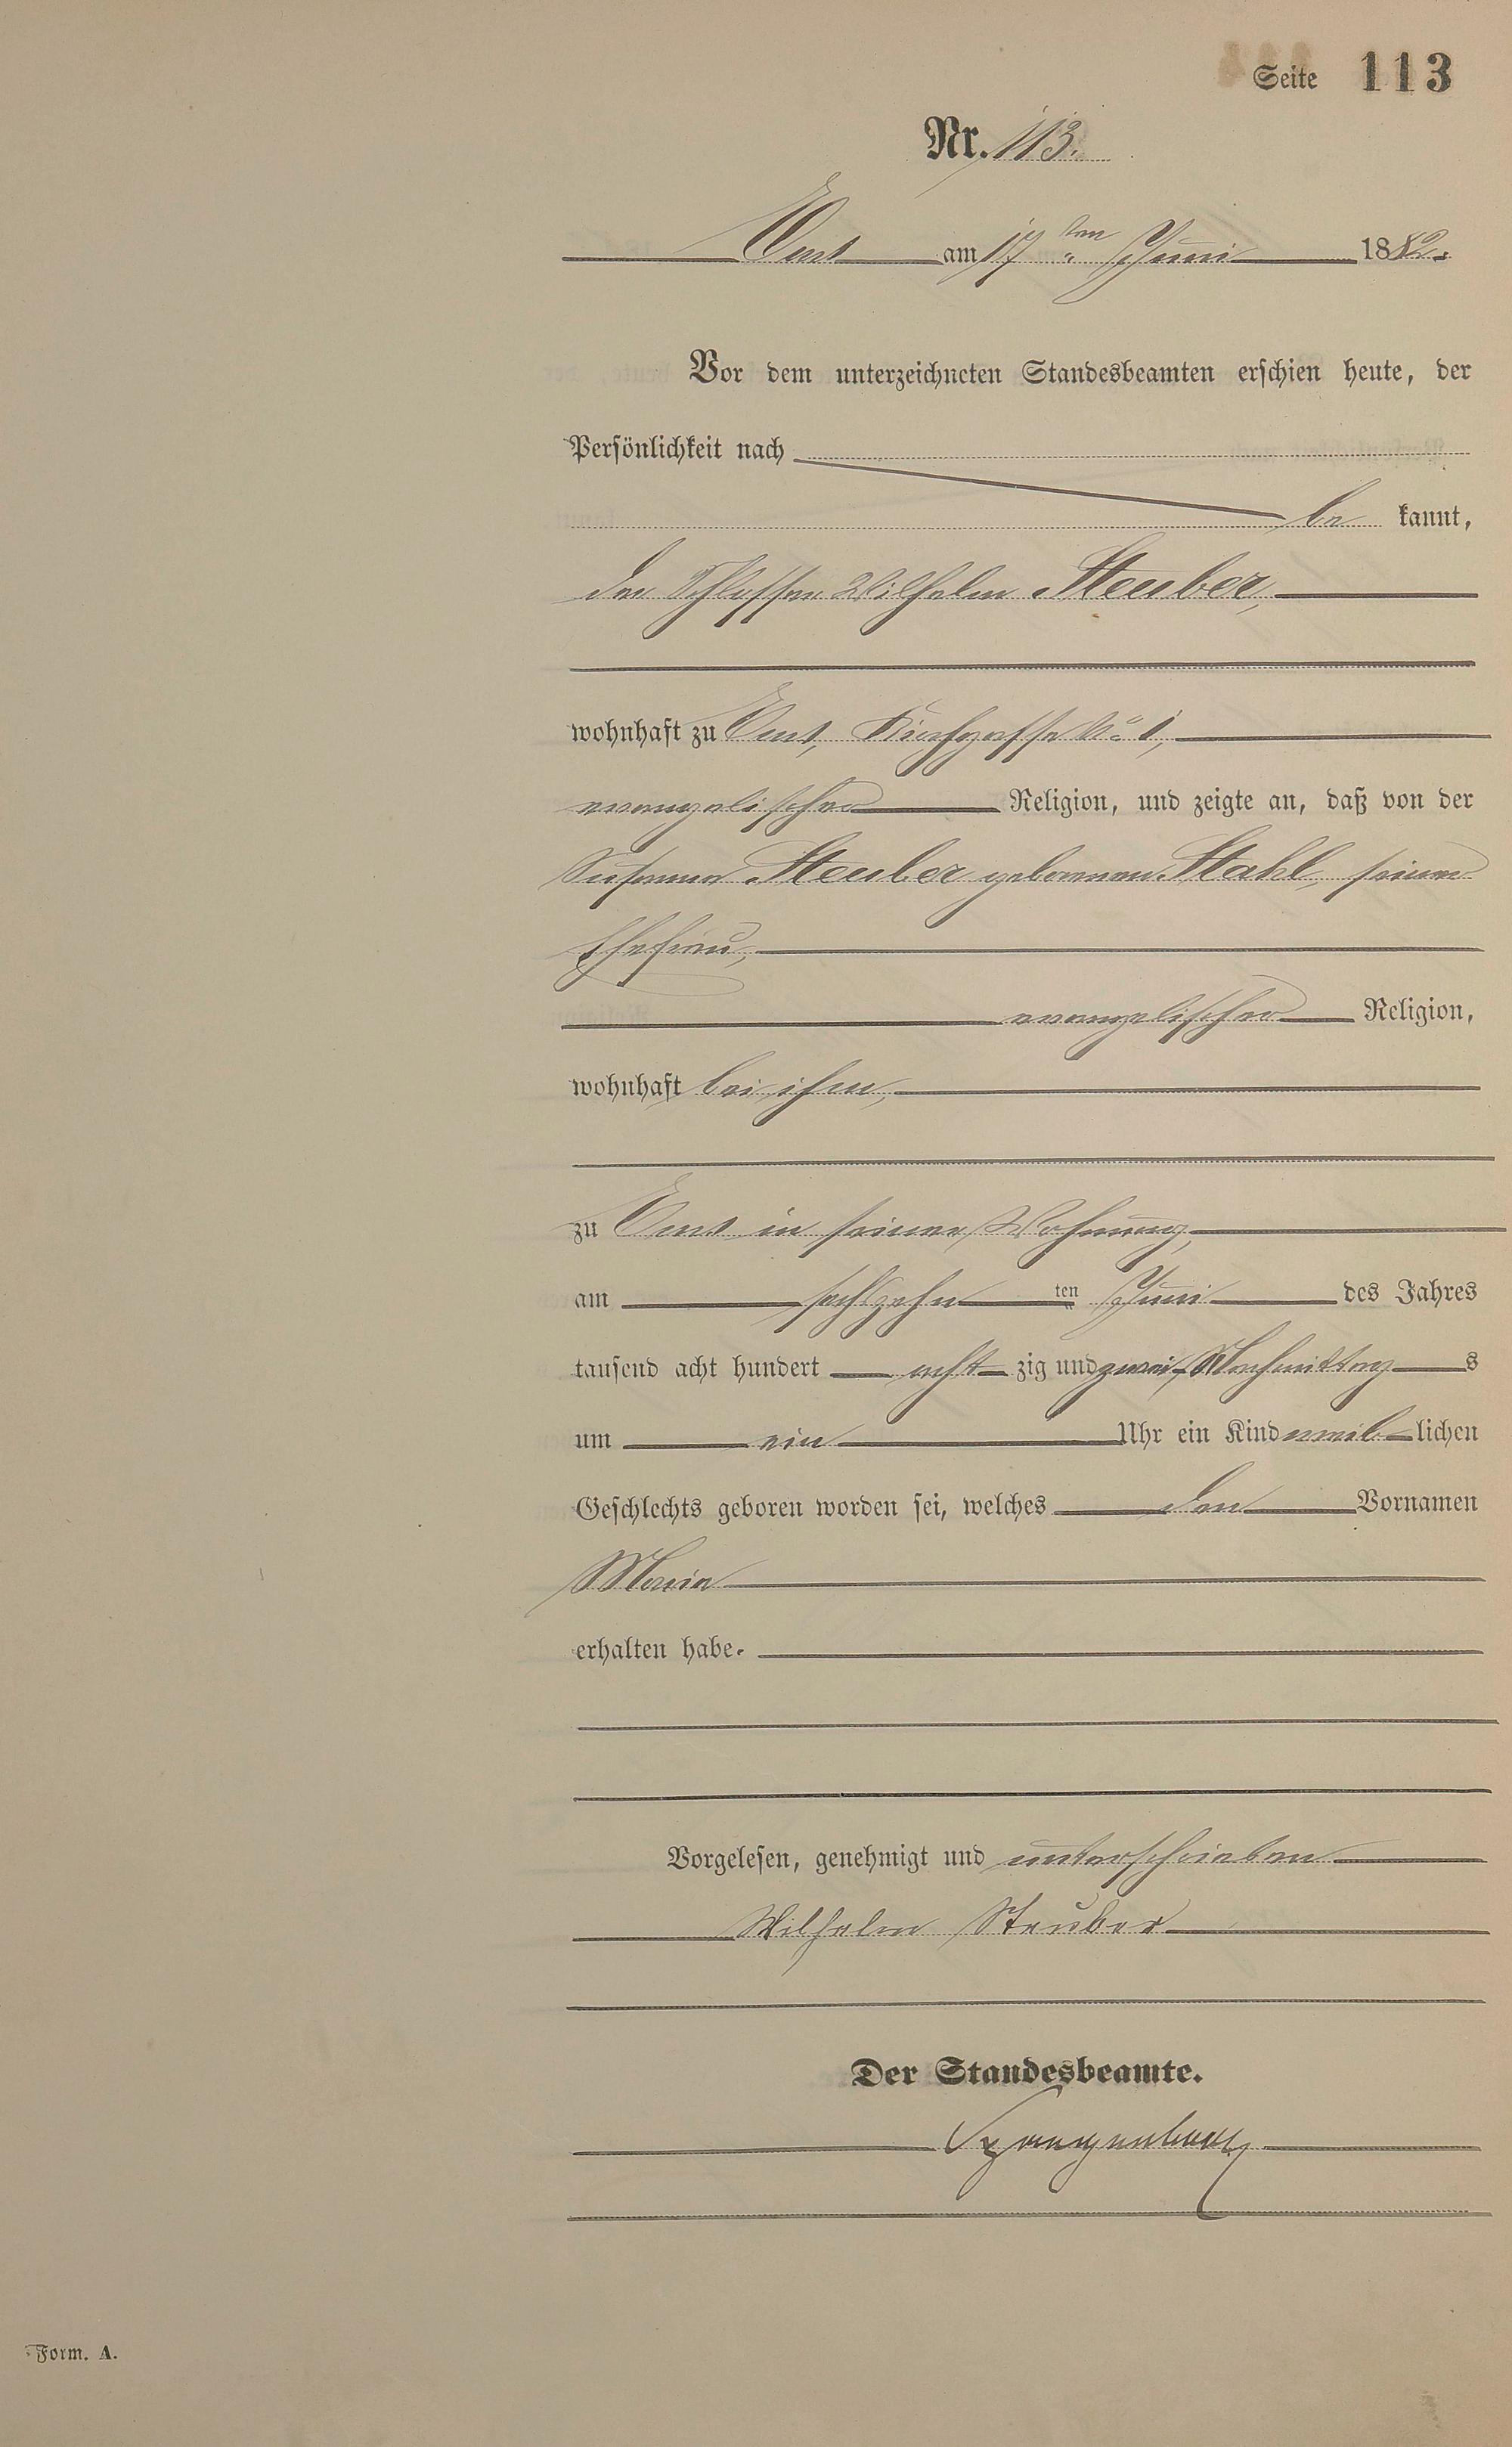 Seite 113
Nr. 113.
Ems am 17ten Juni 1882.
Vor dem unterzeichneten Standesbeamten erschien heute, der
Persönlichkeit nach
be kannt,
der Schlosser Wilhelm Steuber,
wohnhaft zu Ems, Kirchgasse No 1,
evangelischer Religion, und zeigte an, daß von der
Susanna Steuber geborenen Stahl, seiner
Ehefrau,
evangelischer Religion,
wohnhaft bei ihm,
zu Ems in seiner Wohnung,
am sechszehn ten Juni des Jahres
tausend acht hundert acht zig und zwei Nachmittag s
um ein Uhr ein Kind weib lichen
Geschlechts geboren worden sei, welches den Vornamen
Marie
erhalten habe.
Vorgelesen, genehmigt und unterschrieben
Wilhelm Steuber
Der Standesbeamte.
Form. A.